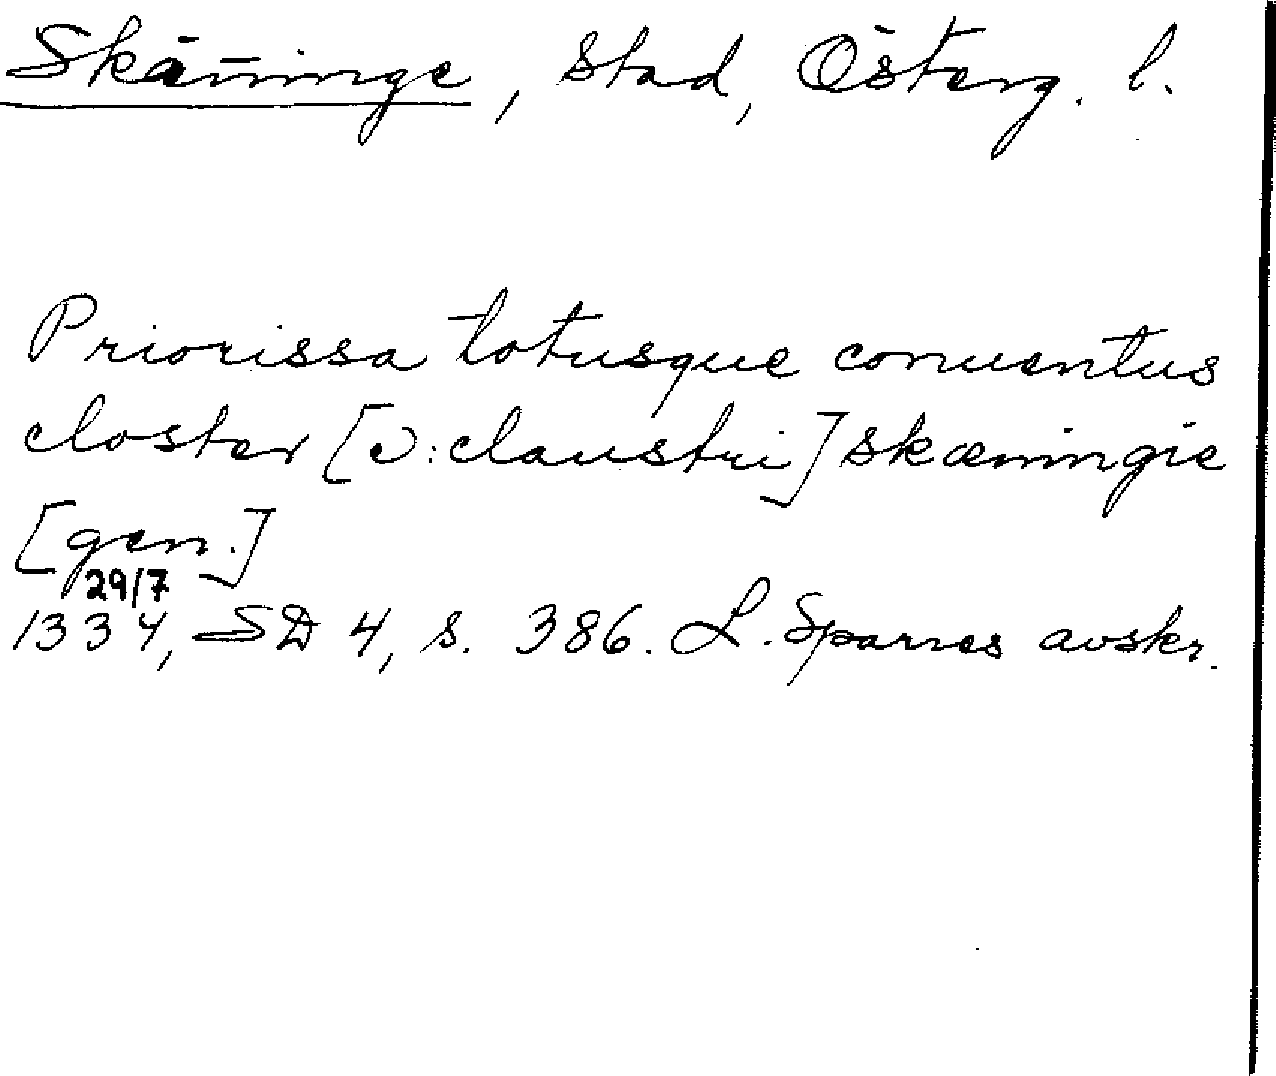 Skänninge, stad, Österg. l.
Priorissa totusque conuentus
closter [ɔ: claustri] skæningie
[gen.]
29/7
1334, SD 4, s. 386. L. Sparres avskr.